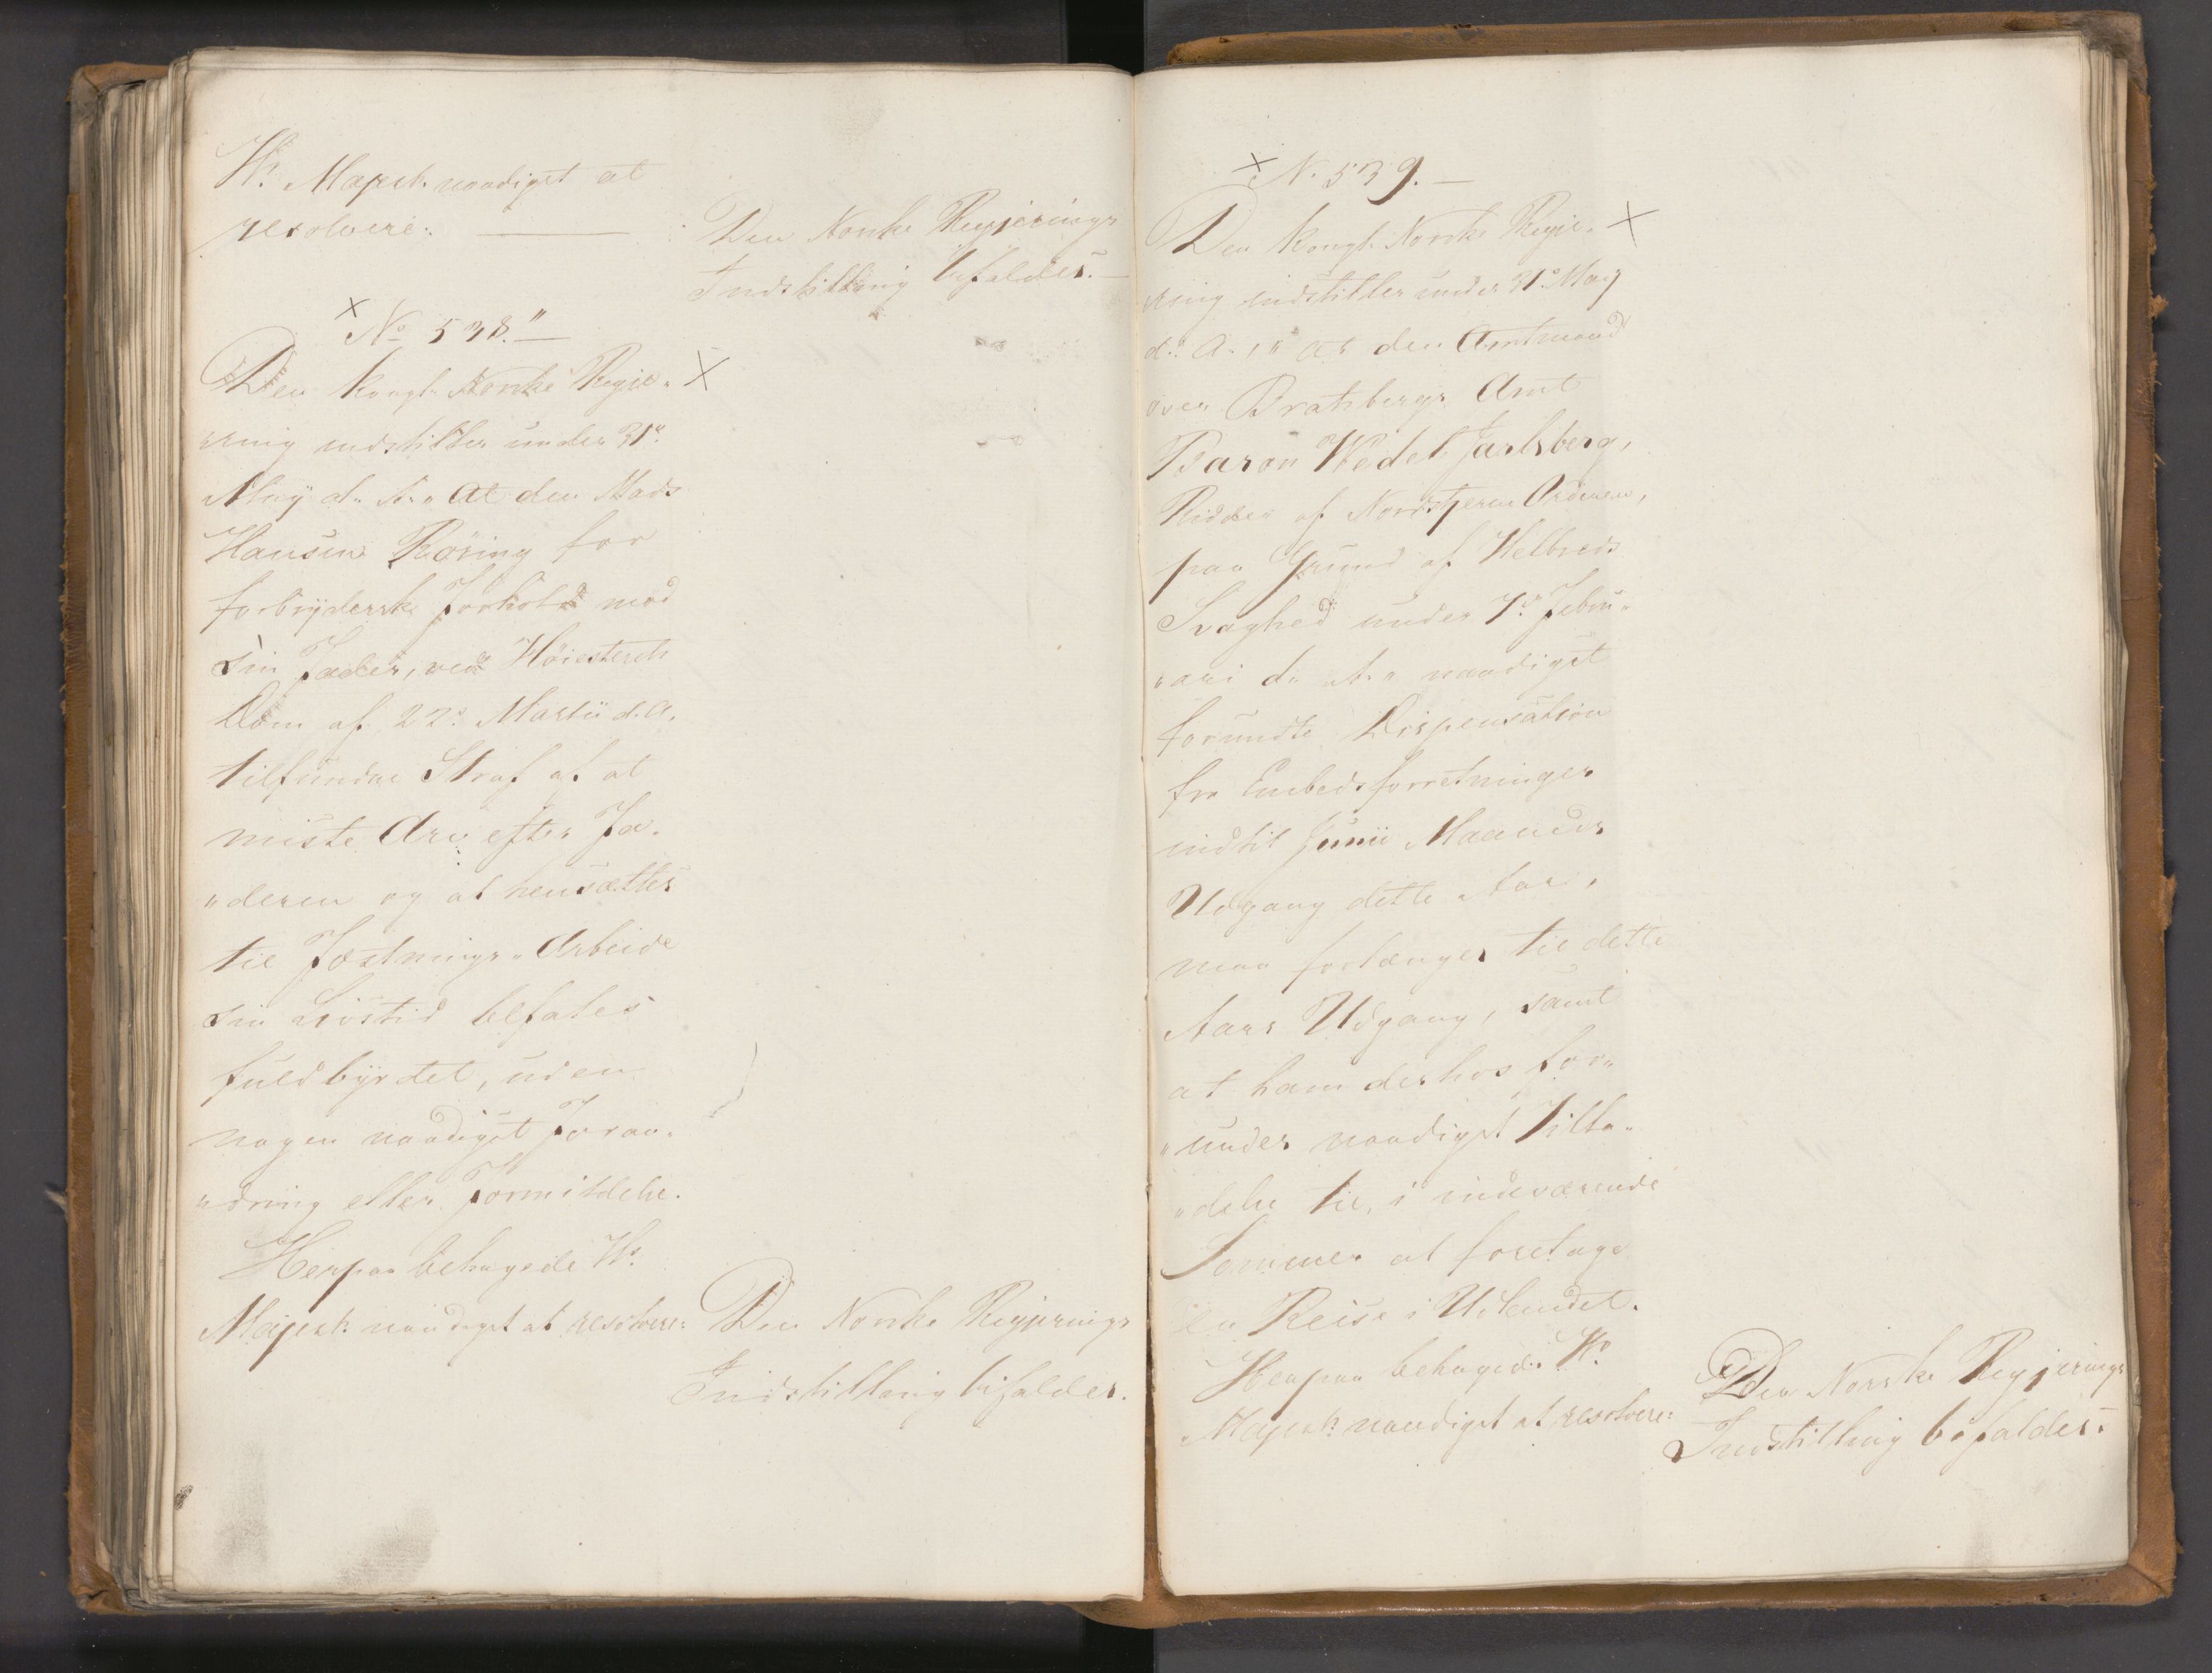 H: Majest: naadigst at
resolvere: —
Den Norske Regjerings
Indstilling bifaldes. —
× No 538." —
Den kongl. Norske Regje„ ×
ring indstiller under 31te
May d. A. „ At den Mads
Hansen Röring for
forbrydersk Forhold mod
sin Fader, ved Höiesterets
Dom af 22de Martii d. A.
tilfundne Straf af at
miste Arv efter Fa„
„deren og at hensættes
til Fæstnings„Arbeide
sin Livstid befales
fuldbyrdet, uden
nogen naadigst Foran„
„dring eller Formildelse.
Herpaa behagede H:
Majest: naadigst at resolvere:
Den Norske Regjerings
Indstilling bifaldes.
× No 539. —
Den kongl. Norske Regje„ ×
ring indstiller under 31te May
d. A., „ At den Amtmand
over Bratsbergs Amt
Baron Wedel Jarlsberg,
Ridder af Nordstjerne Ordenen,
paa Grund af Helbreds
Svaghed under 7de Febru„
„ari d. A. „ naadigst
forundte Dispensation
fra Embedsforretninger
indtil Junii Maaneds
Udgang dette Aar,
maa forlænges til dette
Aars Udgang, samt
at ham derhos for„
„undes naadigst Tilla„
„delse til, i indeværende
Sommer at foretage
en Reise i Udlandet.
Herpaa behagede H:
Majest: naadigst at resolvere:
Den Norske Regjerings
Indstilling bifaldes.